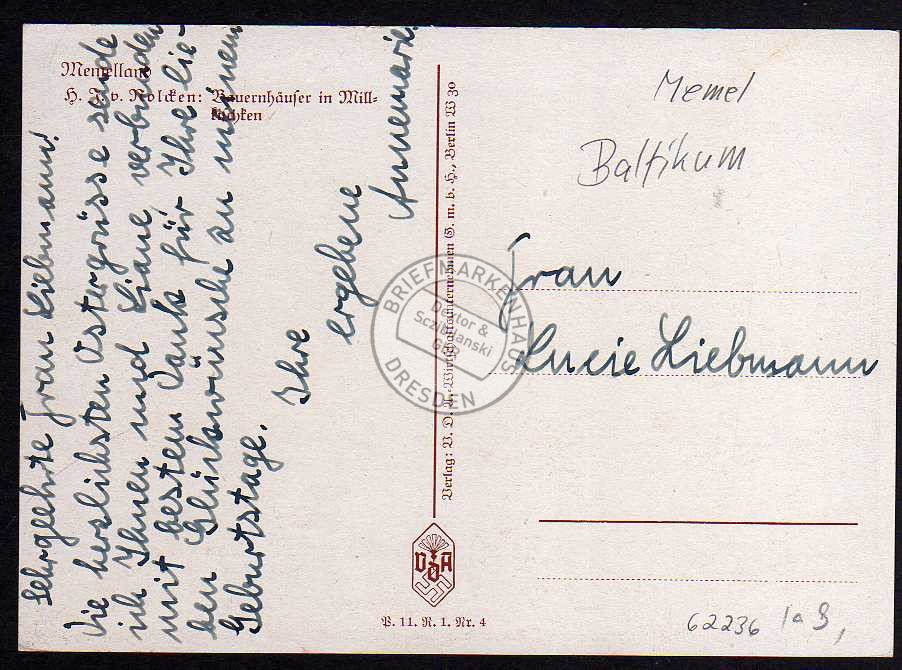 Memelland
H. T. v. Nolcken: Bauernhäuser in Mill-
kischken
Sehrgeehrte Frau Liebmann!
Die herzlichsten Ostergrüsse sende
ich Ihnen und Liane verbunden
mit bestem Dank für Ihre lie-
ben Glückwünsche an meinem
Geburtstage.
Ihre
ergebene
Annemarie.
Verlag: V. D. A.-Wirtschaftsunternehmen G. m. b. H., Berlin W 30
VDA
P. 11. R. 1. Nr. 4
Memel
Baltikum
Frau
Lucie Liebmann
62236 Ia
BRIEFMARKENHAUS
Dextor &
Sczibilanski
GBR
DRESDEN